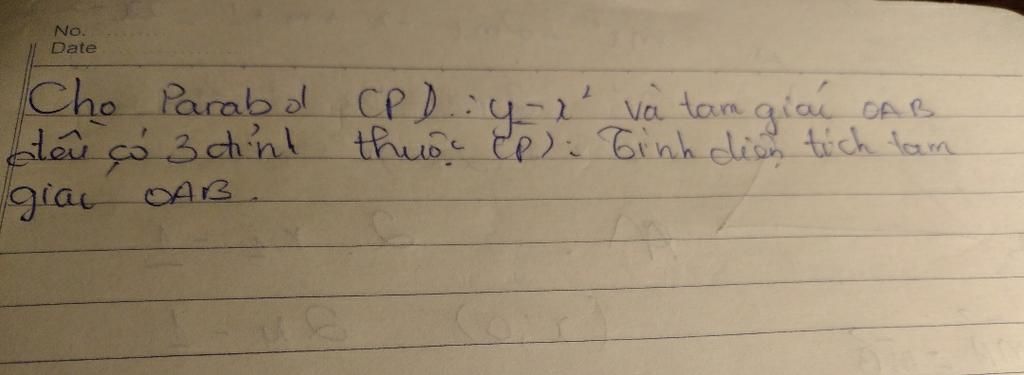 No.
Date
Cho Parabol (P) : y = x² và tam giác OAB
đều có 3 đỉnh thuộc (P). Tính diện tích tam
giác OAB.